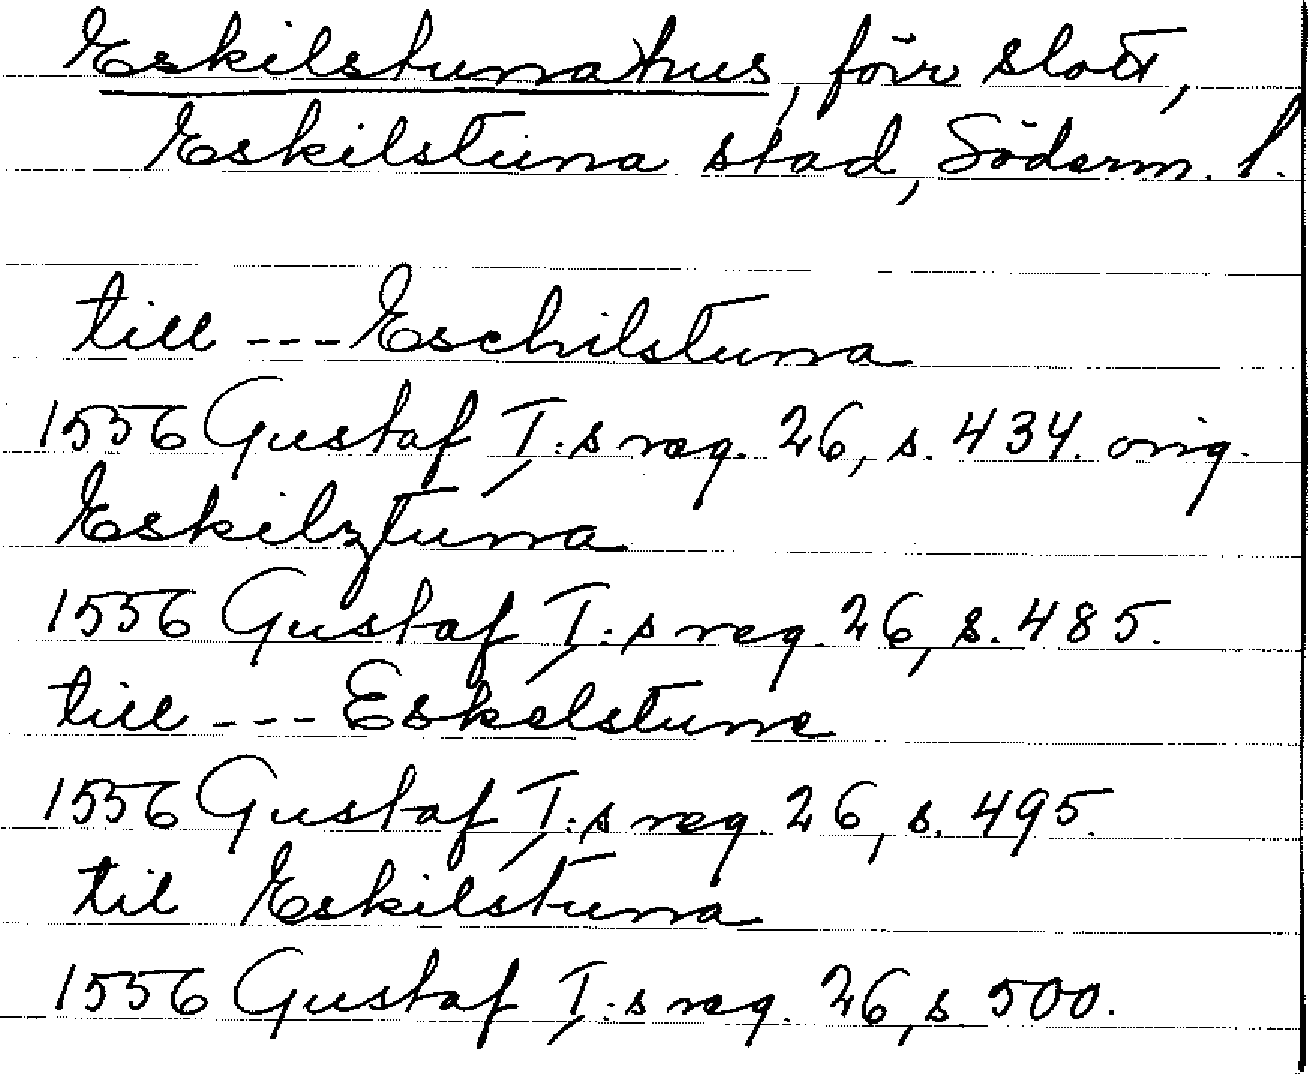 Eskilstunahus, förr slott,
Eskilstuna stad, Söderm. l.
till --- Eschilstuna
1556 Gustaf I:s reg. 26, s. 434. orig.
Eskilztuna
1556 Gustaf I:s reg. 26, s. 485.
till --- Eskelstune
1556 Gustaf I:s reg. 26, s. 495.
til Eskilstuna
1556 Gustaf I:s reg. 26, s 500.